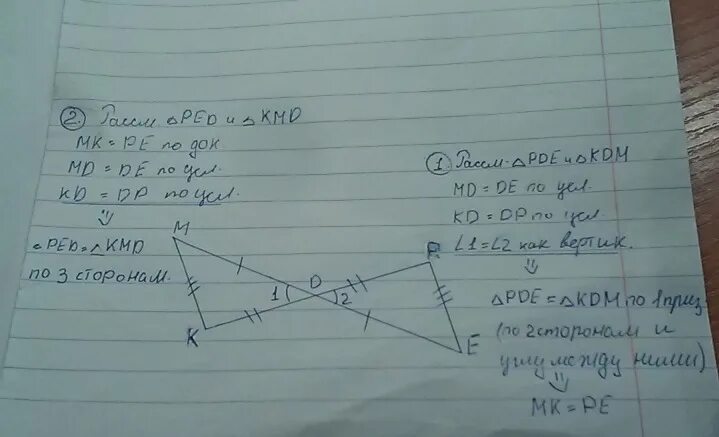 ② Рассм. △PED и △KMD
MK = PE по док
MD = DE по усл.
KD = DP по усл.
⇓
△PED = △KMD
по 3 сторонам.
① Рассм. △PDE и △KDM
MD = DE по усл.
KD = DP по усл.
∠1 = ∠2 как вертик.
⇓
△PDE = △KDM по 1 приз
(по 2 сторонам и
углу между ними)
⇓
MK = PE
M
P
1
D
2
K
E